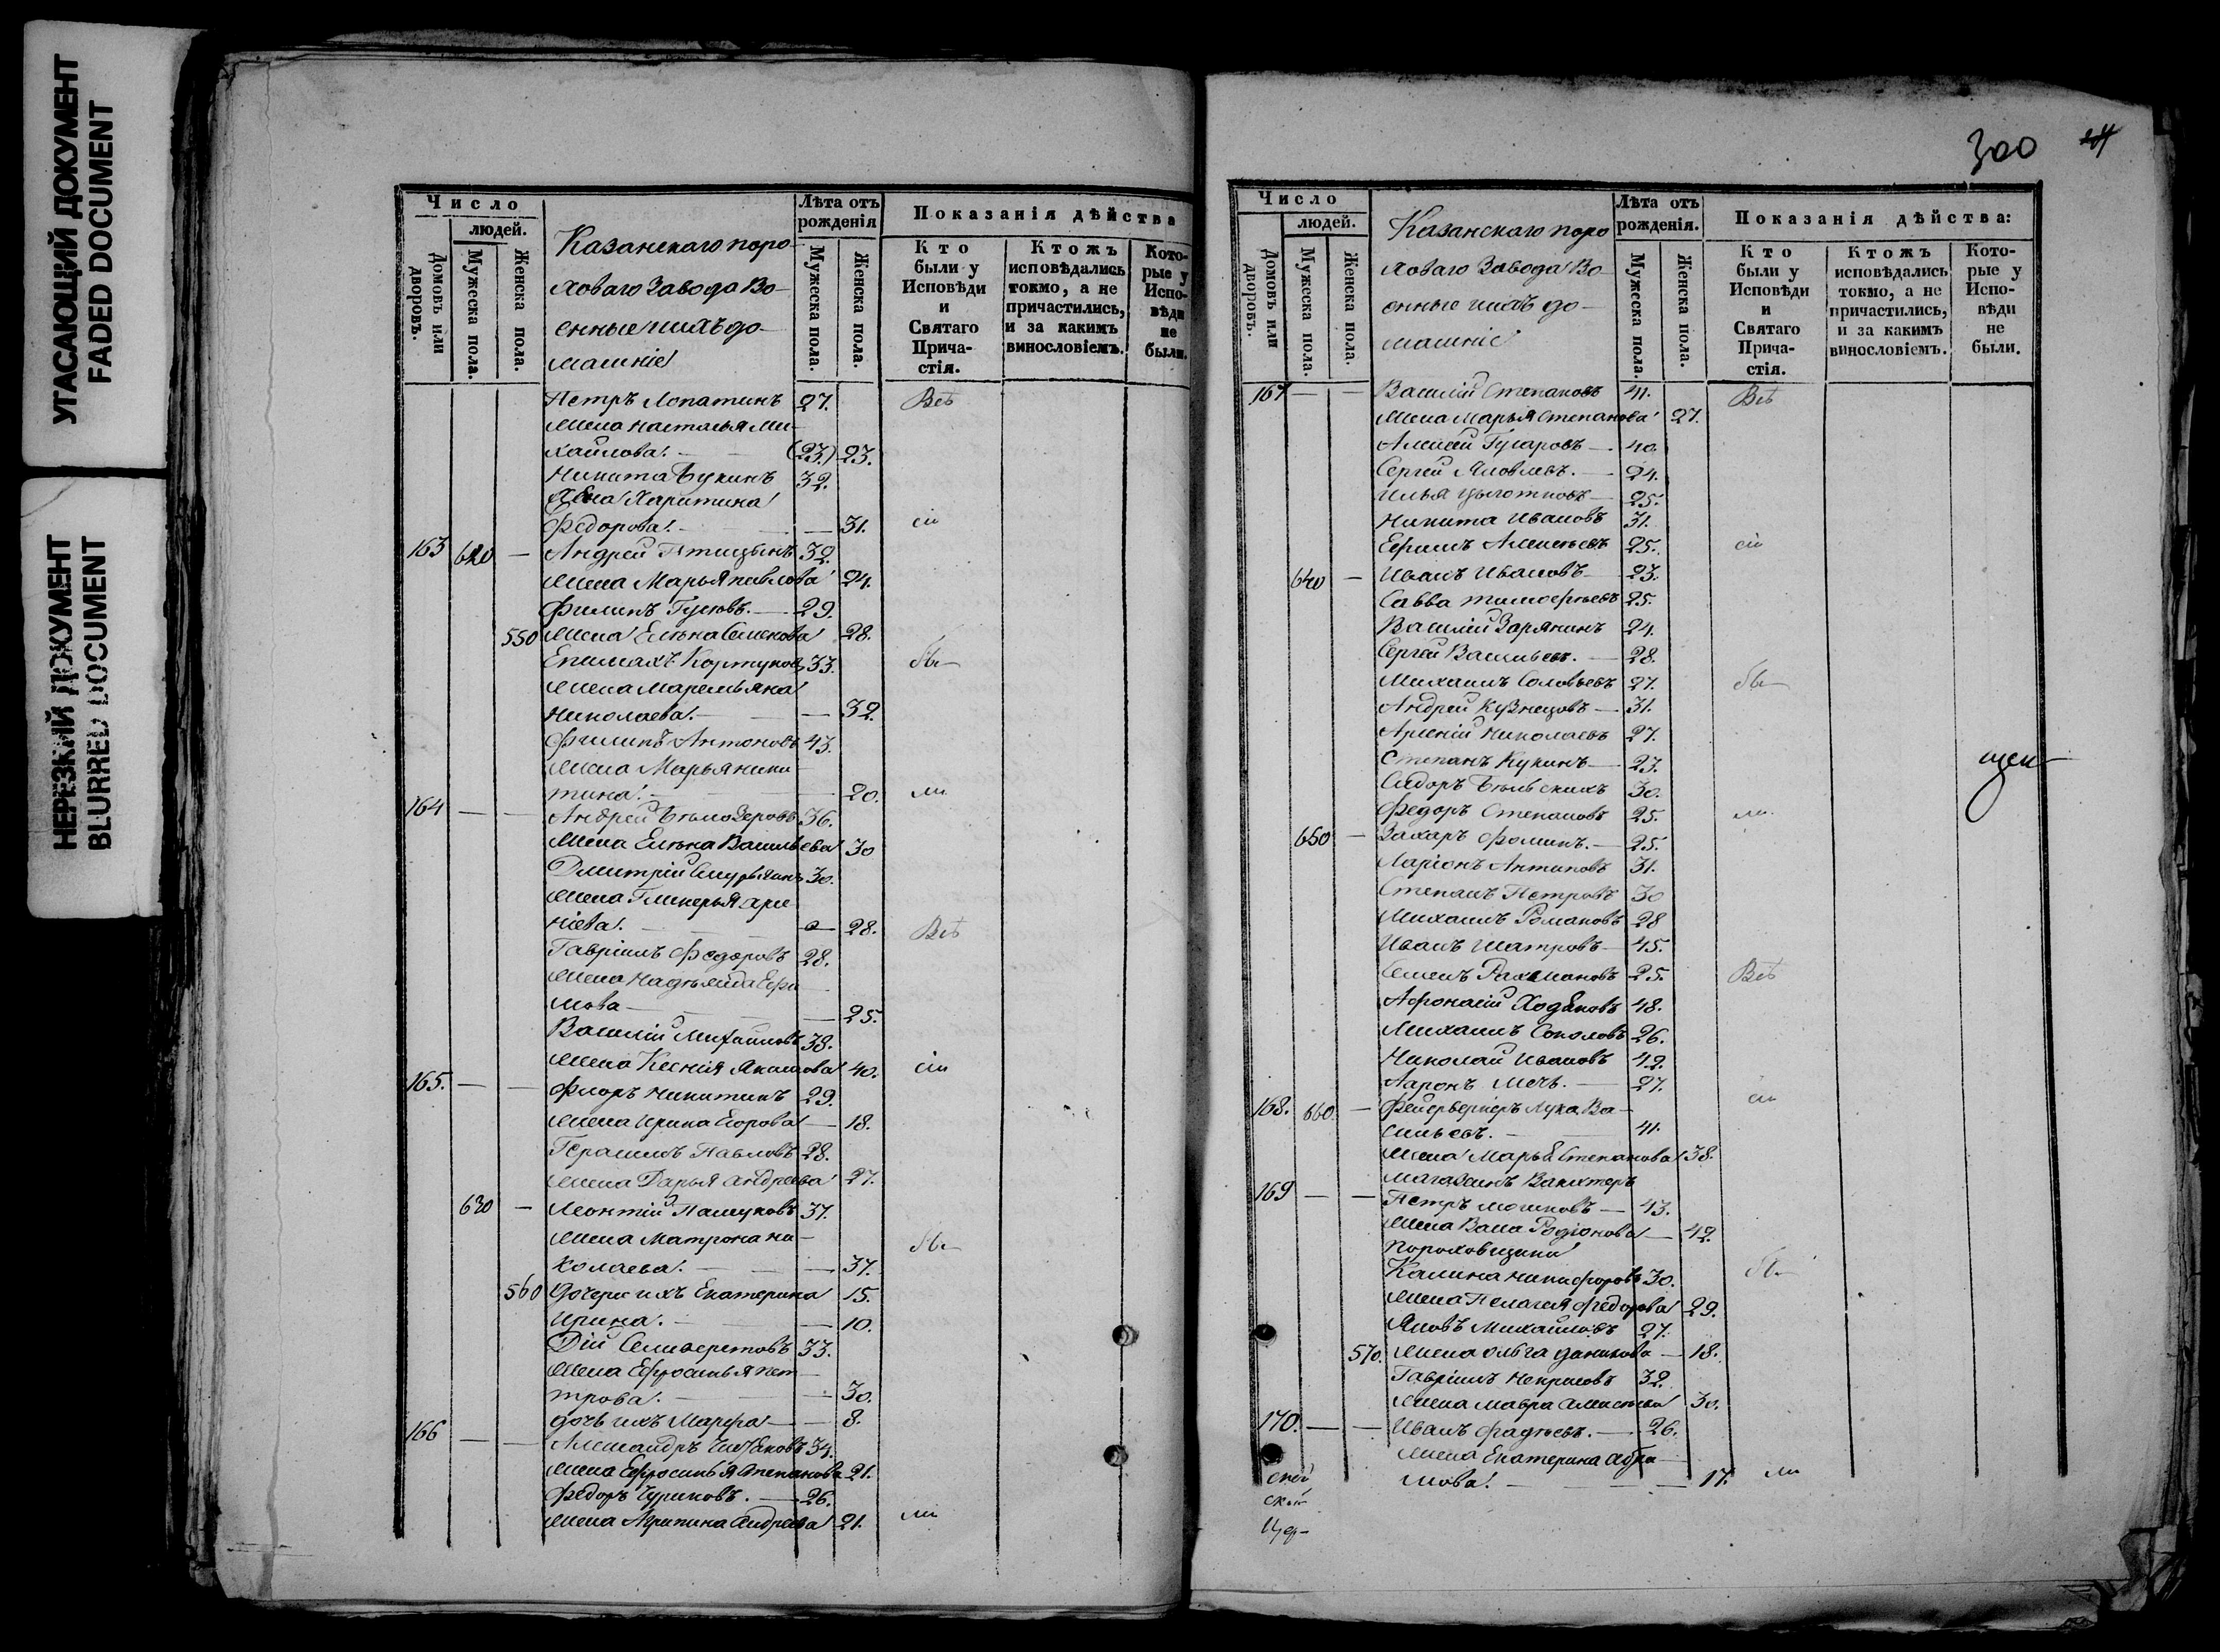 УГАСАЮЩИЙ ДОКУМЕНТ
FADED DOCUMENT
НЕРЕЗКИЙ ДОКУМЕНТ
BLURRED DOCUMENT
Число
людей.
Домовъ или дворовъ.
Мужеска пола.
Женска пола.
Казанскаго поро-
ховаго Завода Во-
енные ихъ до-
машніе
Лѣта отъ
рожденія
Мужеска пола.
Женска пола.
Показанія дѣйства
Кто
были у
Исповѣди
и
Святаго
Прича-
стія.
Ктожъ
исповѣдались
токмо, а не
причастились,
и за какимъ
винословіемъ.
Кото-
рые у
Испо-
вѣди
не
были.
Петръ Лопатинъ 27. Всѣ
Жена Настасья Ми-
хайлова. — (23.) 23.
Никита Букинъ 32.
Жена Харитина
Федорова. — — 31. сіи
163 620 — Андрей Птицынъ 32.
Жена Марья павлова 24.
Филипъ Гусювъ. — 29.
550 Жена Елѣна Семенова 28.
Епимахъ Кортуковъ 33. бы—
Жена Маремьяна
Николаева. — — 32.
Филипъ Антоновъ 43.
Жена Марья ники-
тина. — — 20. ли
164 — — Андрей Бѣлозеровъ 36.
Жена Елѣна Васильева 30
Дмитрій 30.
Жена Гликерья арсе
ніева. — 28. Всѣ
Гавріилъ Федоровъ 28.
Жена Надѣжда Ефи
мова — — 25.
Василій Михайловъ 38.
Жена Ксенія Акимова 40. сіи
165. — — Флоръ Никитинъ 29.
Жена Ирина Егорова — 18.
Герасимъ Павловъ 28.
Жена Дарья Андреева 27.
630 — Леонтій Пашуковъ 37.
Жена Матрона ни- бы—
колаева. — — 37.
560 Дочери ихъ Екатерина 15.
Ирина. — — 10.
Дій Селиверстовъ 33.
Жена Ефросинья пет—
трова. — — 30.
дочь ихъ Марфа — — 8.
166 — — Александръ 34.
Жена Ефросинья Степанова 21.
Федоръ Чуриковъ. — 26.
Жена Агрипина Андреева 21. ли
300
Число
людей.
Домовъ или дворовъ.
Мужеска пола.
Женска пола.
Казанскаго поро
ховаго Завода Во
енные ихъ до-
машніе
Лѣта отъ
рожденія.
Мужеска пола.
Женска пола.
Показанія дѣйства:
Кто
были у
Исповѣди
и
Святаго
Прича-
стія.
Ктожъ
исповѣдались
токмо, а не
причастились,
и за какимъ
винословіемъ.
Кото-
рые у
Испо-
вѣди
не
были.
167 — — Василій Степановъ 41. Всѣ
Жена Марья Степанова 27.
Алексей Гусаровъ — 40.
Сергей Яковлевъ. — 24.
Илья — 25.
Никита Ивановъ 31.
Ефимъ Алексѣевъ 25. сіи
640 — Иванъ Ивановъ — 23.
Савва тимофѣевъ 25.
Василій Зарянинъ 24.
Сергей Васильевъ. — 28.
Михаилъ Соловьевъ 27. бы—
Андрей Кузнецовъ — 31.
Арсеній Николаевъ 27.
Степанъ Кукинъ — 23.
Сидоръ Бѣльскихъ 30.
Федоръ Степановъ 25. ли
650 — Захаръ Фоминъ. — 25.
Ларіонъ Антиповъ 31.
Степанъ Петровъ 30
Михаилъ Романовъ 28
Иванъ Шатровъ — 45.
Семенъ Рахмановъ 25. Всѣ
Афонасій Ходаковъ 48.
Михаилъ Соколовъ 26.
Николай Ивановъ 42.
Ааронъ Мечь. — 27.
168. 660. — Фейерверкеръ Лука Ва- сіи
сильевъ. — 41.
Жена Марья Степанова 38.
Магазинъ Вахтеръ
169 — — Петръ мошковъ — 43.
Жена Васа Родіонова — 42.
Пороховщики
Калина никифоровъ 30. бы—
Жена Пелагея Федорова 29.
Яковъ Михайловъ 27.
570. Жена ольга данилова — 18.
Гавріилъ Некрасовъ 32.
Жена мавра Алексѣева 30.
170. — — Иванъ Фадѣевъ. — 26.
Жена Екатерина абра-
мова. — — 17. ли
ской
Цер-